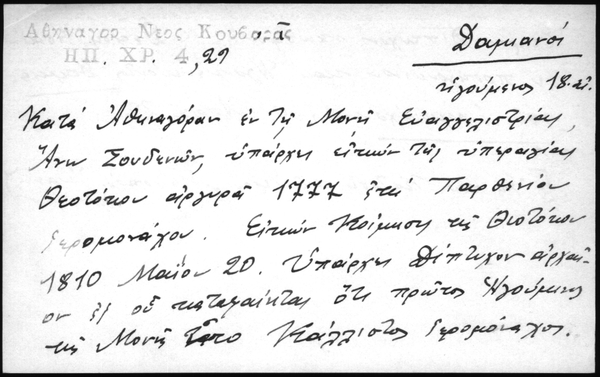 Αθηναγορ. Νεος Κουβαρᾶς
ΗΠ. ΧΡ. 4, 29
Δαμιανοί
ἡγούμενος 18
Κατά Ἀθηναγόραν ἐν τῇ Μονῇ Εὐαγγελιστρίας,
Ἄνω Σουδενῶν, ὑπάρχει εἰκών τῆς ὑπεραγίας
Θεοτόκου ἀργυρᾶ 1777 ἐπί Παρθενίου
ἱερομονάχου. Εἰκών Κοίμησις τῆς Θεοτόκου
1810 Μαΐου 20. Ὑπάρχει Δίπτυχον ἀρχαῖ-
ον ἐξ οὗ καταφαίνεται ὅτι πρῶτος Ἡγούμενος
τῆς Μονῆς Κάλλιστος ἱερομόναχος.